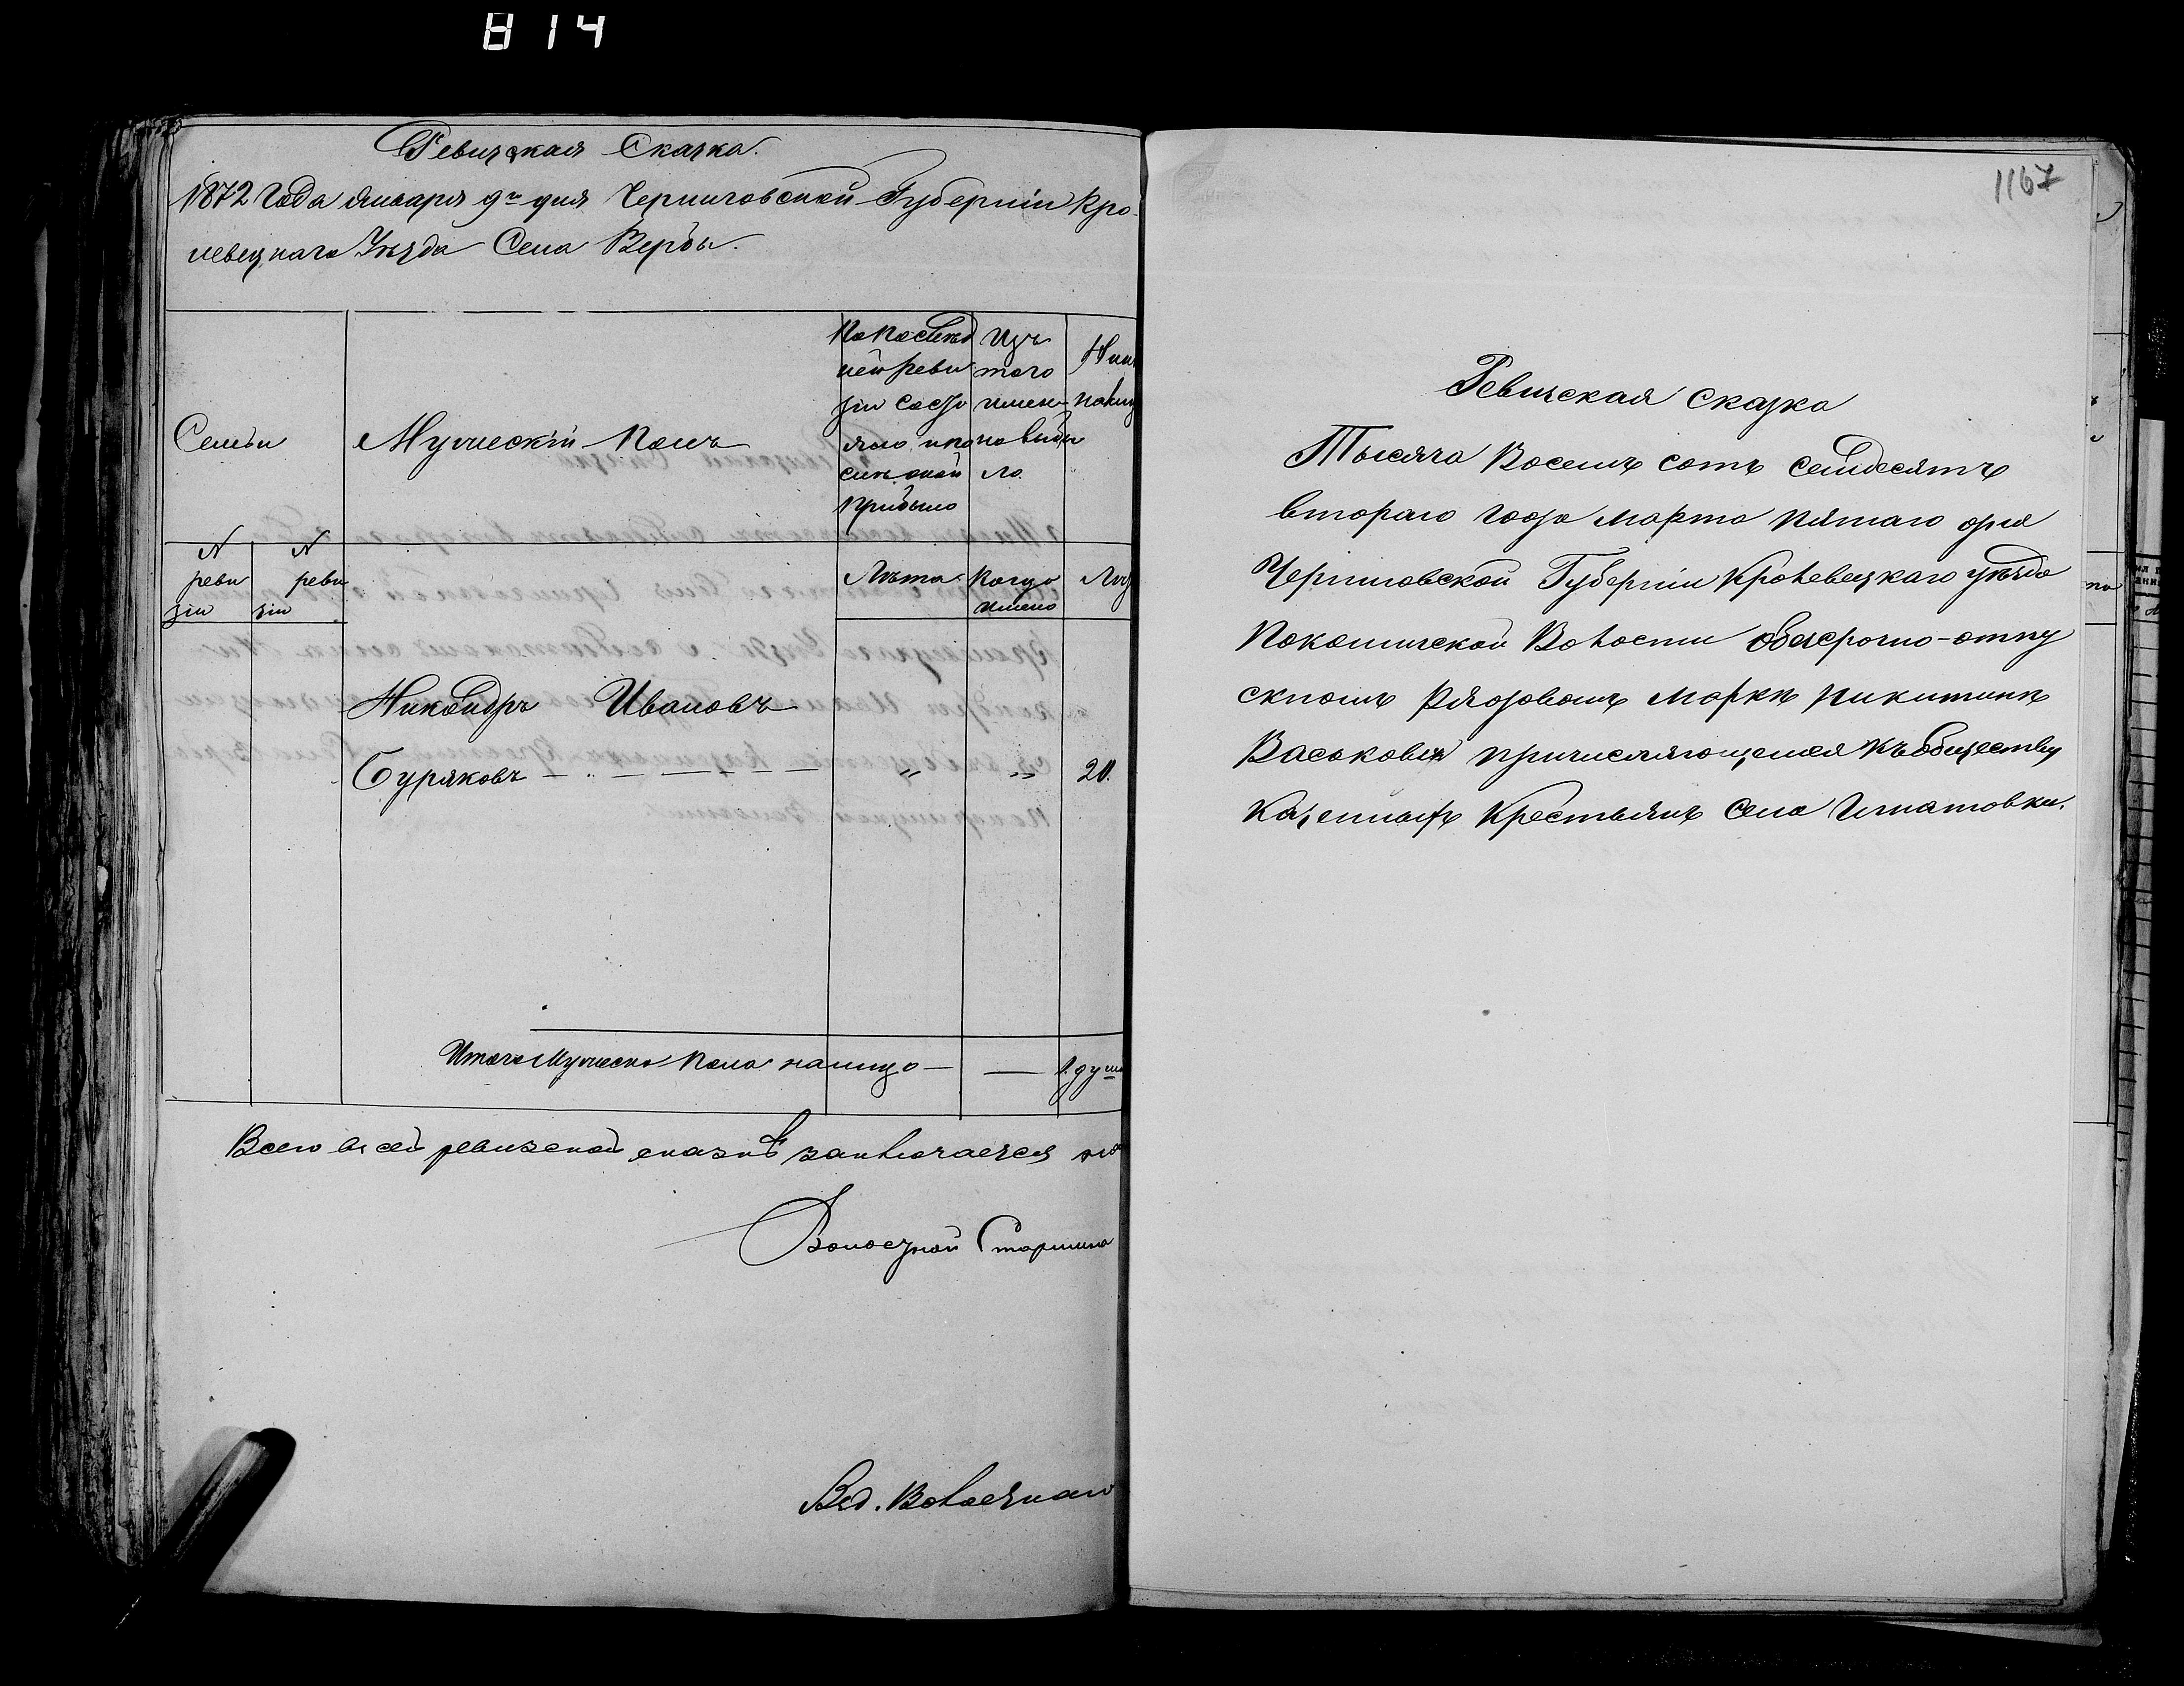 814
Ревизская Сказка.
1872 Года Января 9го дня Черниговской Губернiи Кро-
левецкаго Уѣзда Села Вербы.
Семьи
Мужескiй Полъ
По послѣд
ней реви
зiи состо
яло и по
слѣ оной
прибыло
Изъ
того
числа
выбы
ло.
Ны
№
реви
зiи
№
реви
зiи
Лѣта
Когда
имено
Лѣ
Никандръ Ивановъ
Буряковъ — „ — — — — — „ „ 20.
Итого Мужеска пола налицо — — 1. душ
Всего въ сей ревизской сказкѣ заключается
Волостной Старшина
Волостнаго
1167
Ревизская сказка
Тысяча Восемь сотъ семдесятъ
втораго года марта пятаго дня
Черниговской Губернiи Кролевецкаго уѣзда
Покошичской Волости обезсрочно-отпу
скномъ рядовомъ Маркѣ Никитинѣ
Васьковѣ причисляющемся къ обществу
казенныхъ Крестьянъ Села Игнатовки.